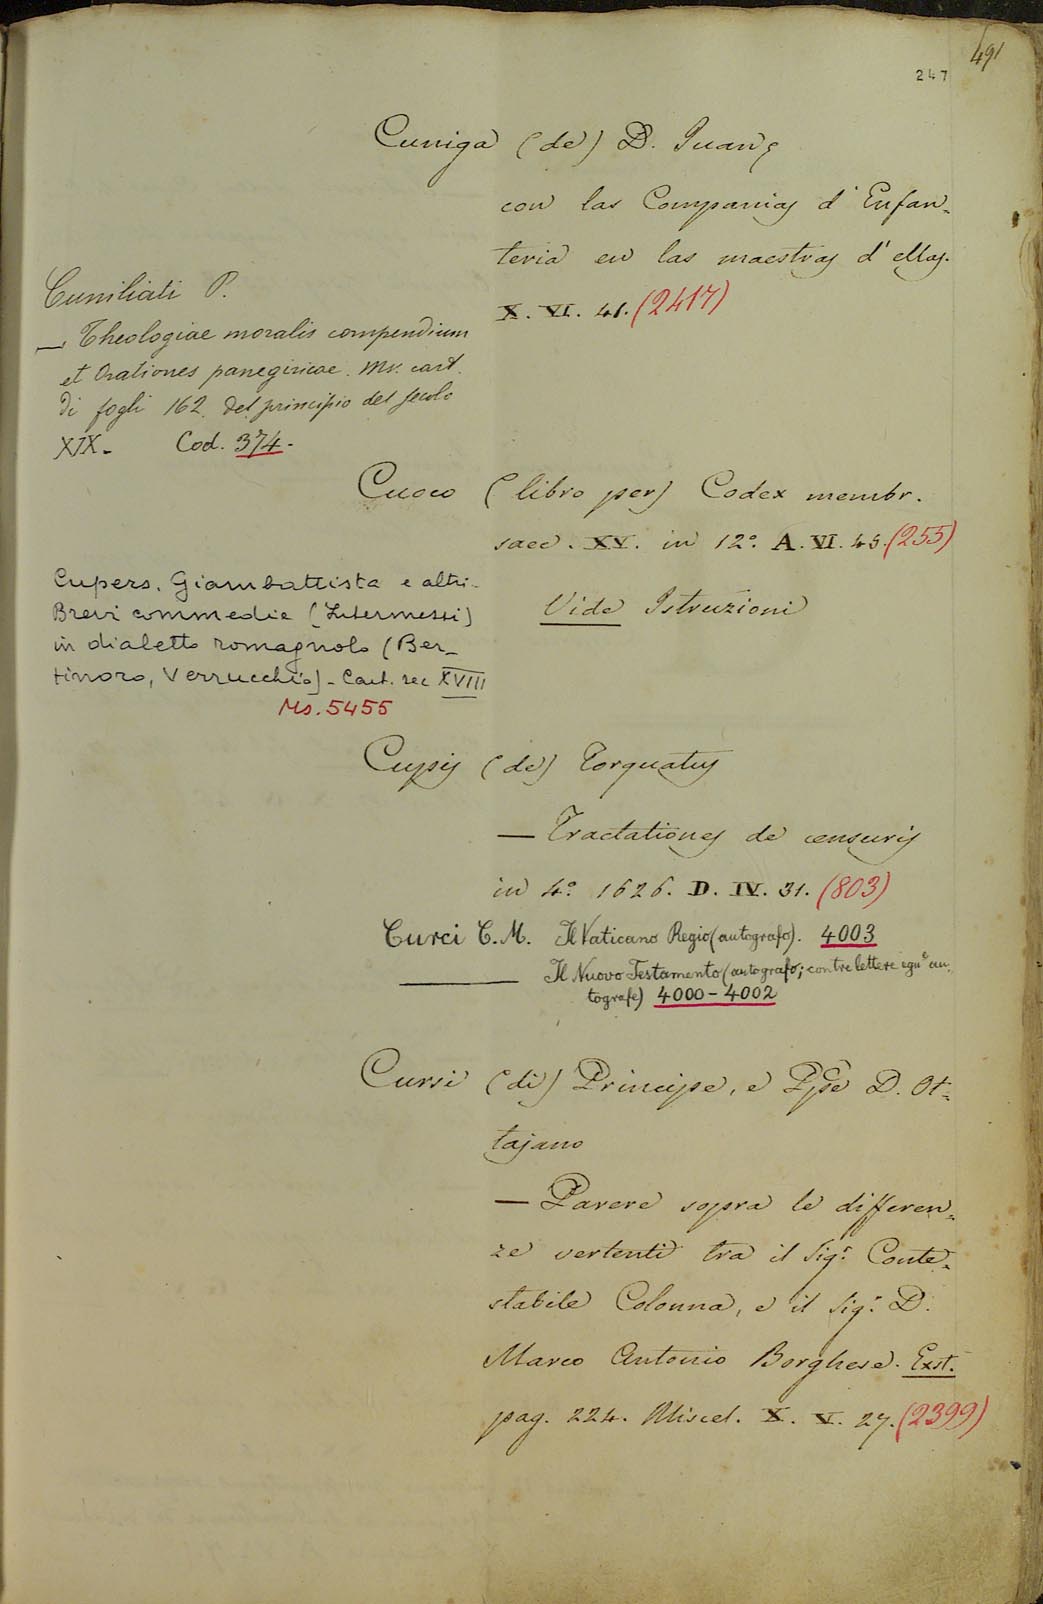 491
247
Cuniga (de) D. Juan,
con las Companias d' Enfan-
teria en las maestras d' ellas.
X. VI. 41. (2417)
Cuniliati P.
— Theologiae moralis compendium
et Orationes panegiricae. Ms. cart.
di fogli 162. del principio del secolo
XIX. Cod. 374.
Cuoco (libro per) Codex membr.
saec. XV. in 12.° A. VI. 45. (255)
Vide Istruzioni
Cupers. Giambattista e altri.
Brevi commedie (Intermessi)
in dialetto romagnolo (Ber-
tinoro, Verrucchio) - Cart. sec XVIII
Ms. 5455
Cupis (de) Torquatus
— Tractationes de censuris
in 4.° 1626. D. IV. 31. (803)
Curci C. M. Il Vaticano Regio (autografo). 4003
——— Il Nuovo Testamento (autografo; con tre lettere egu.e au-
tografe) 4000 - 4002
Cursi (di) Principe, e Ppe D. Ot=
tajano
— Parere sopra le differen=
ze vertenti tra il Sig.r Conte=
stabile Colonna, e il Sig.r D.
Marco Antonio Borghese. Exst.
pag. 224. Miscel. X. V. 27. (2399)